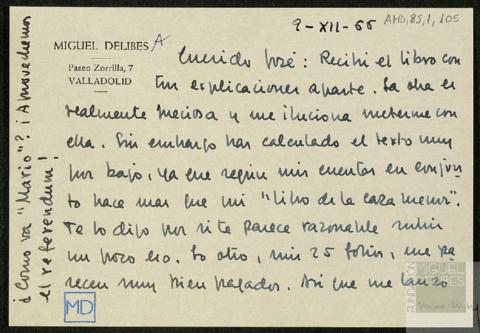 9-XII-66
AMD,85,1,105
MIGUEL DELIBES A
Paseo Zorrilla, 7
VALLADOLID
Querido José: Recibí el libro con
tus explicaciones aparte. La obra es
realmente preciosa y me ilusiona meterme con
ella. Sin embargo has calculado el texto muy
por bajo, ya que según mis cuentas en conjun-
to hace mas que mi "libro de la caza menor".
Te lo digo por si te parece razonable subir
un poco eso. Lo otro, mis 25 folios, me pa-
recen muy bien pagados. Así que me lanzo
¿Como va "Mario"? ¡Aprovechemos
el referendum!
MD
FUNDACIÓN
MIGUEL
DELIBES